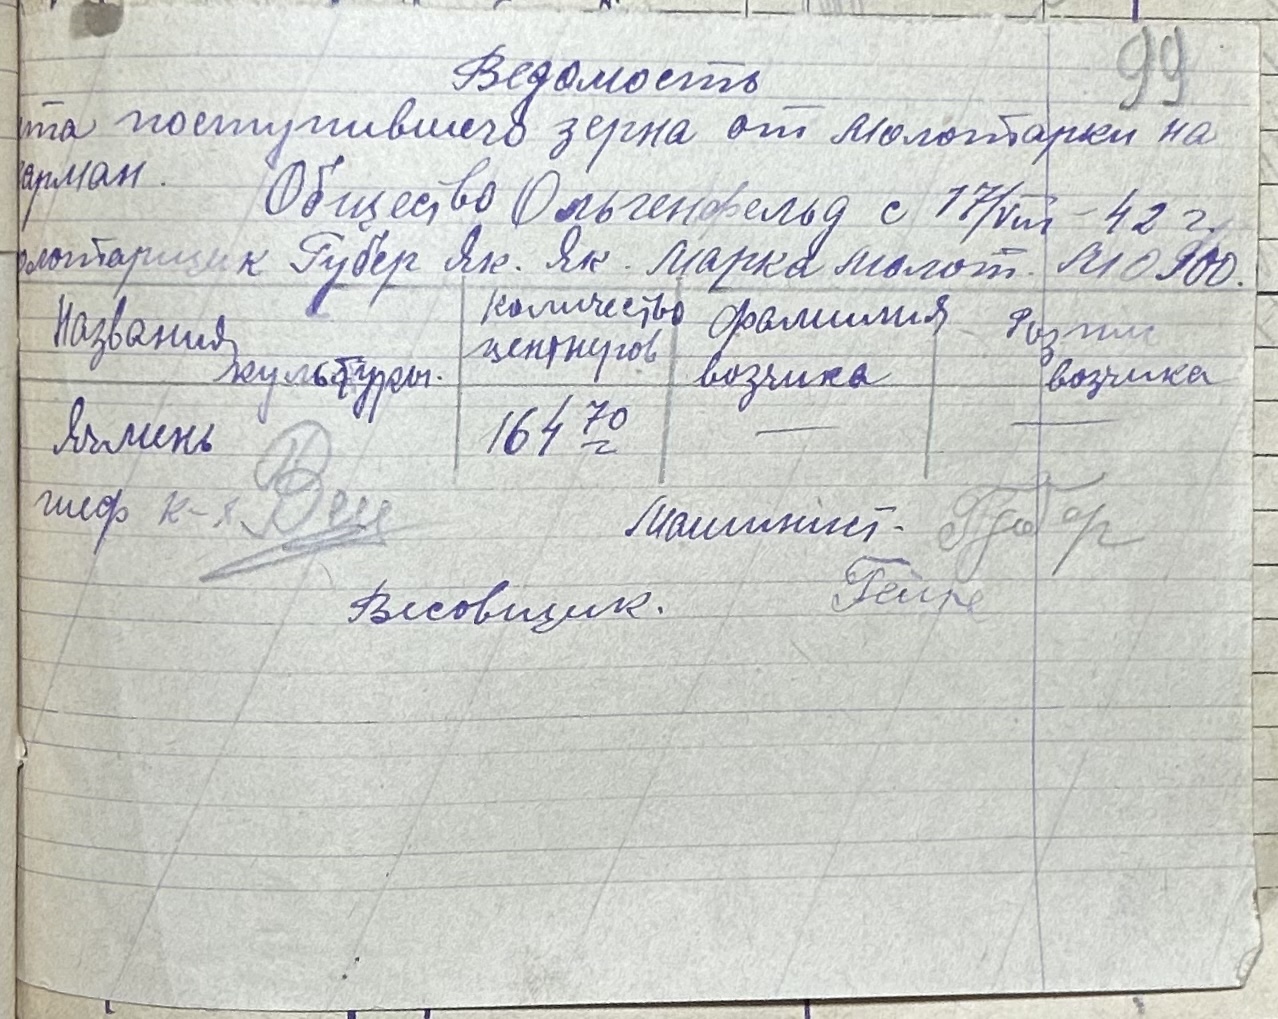 99
Ведомость
та поступившего зерна от молотарки на
арман.
Общество Ольгенфельд с 17/VIII - 42 г.
олотарщик Губер Як. Як. Марка молот. М 0 900.
Названия культуры. количество центнеров фамилия возчика возчика
Ячмень 164 70 — —
шеф к-х.
Машиніст. Губер
Весовщик.